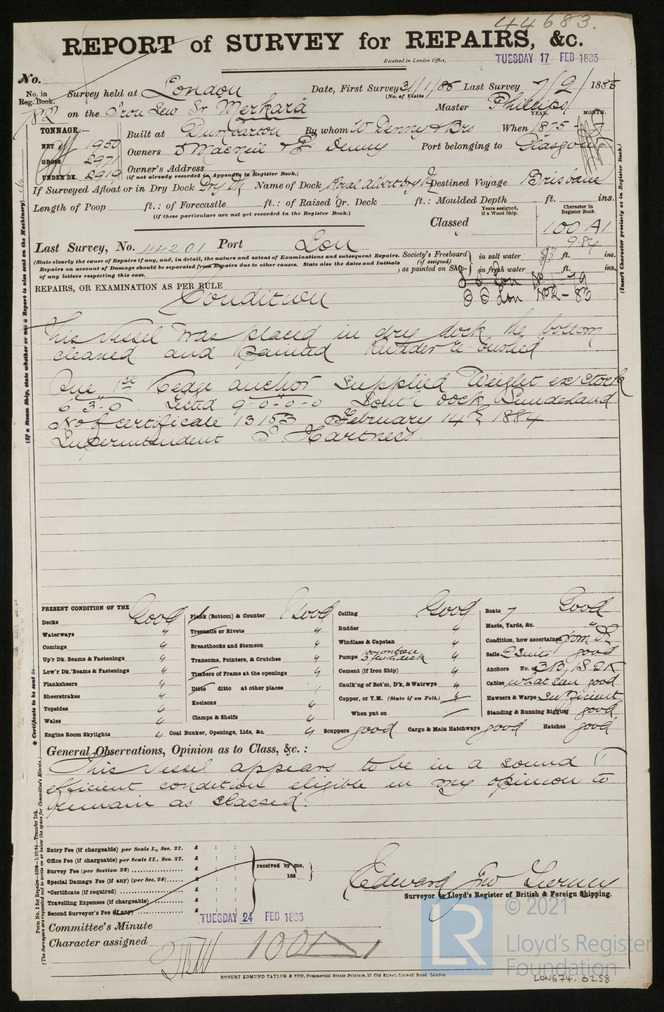 44683.
REPORT of SURVEY for REPAIRS, &c.
Received in London Office, TUESDAY 17 FEB 1885
No.
No. in Reg. Book.
Survey held at London Date, First Survey 31/1/85 Last Survey 7/2/ 1885
(No. of Visits)
on the Iron Screw Sr Merkara Master Phillips
TONNAGE:—
NET 1950
GROSS 2971
UNDER DK. 2919
Built at Dumbarton By whom W Denny & Brs When 1875
YEAR. MONTH.
Owners D MacNeill & P Denny Port belonging to Glasgow
Owner's Address
(if not already recorded in Appendix to Register Book.)
If Surveyed Afloat or in Dry Dock Dry Dk Name of Dock Royal Albert Dry Dk Destined Voyage Brisbane
Length of Poop ft.: of Forecastle ft.: of Raised Qr. Deck ft.: Moulded Depth ft. ins.
(if these particulars are not yet recorded in the Register Book.)
Years assigned, if a Wood Ship.
Character in Register Book.
Classed 100 A1
9.84
Last Survey, No. 44201 Port Lon
(State clearly the cause of Repairs if any, and, in detail, the nature and extent of Examinations and subsequent Repairs.
Repairs on account of Damage should be separated from Repairs due to other causes. State also the dates and Initials
of any letters respecting this case.
Society's Freeboard (if assigned) as painted on Ship
in salt water ft. ins.
in fresh water ft. ins.
REPAIRS, OR EXAMINATION AS PER RULE
Condition
S S Lon No 2-83
This Vessel was placed in dry dock, the bottom
cleaned and painted Rudder re bushed
One 1st Kedge anchor supplied Weight ex Stock
6.3.0 Tested 9-0-0-0 South dock, Sunderland
No of certificate 13153 February 14th, 1884
Superintendent J. Hartness.
PRESENT CONDITION OF THE
Decks Good
Waterways "
Comings "
Up'r Dk. Beams & Fastenings "
Low'r Dk. Beams & Fastenings "
Planksheers "
Sheerstrakes "
Topsides "
Wales "
Engine Room Skylights "
Plank (Bottom) & Counter Good
Treenails or Rivets "
Breasthooks and Stemson "
Transoms, Pointers, & Crutches "
Timbers of Frame at the openings "
Ditto ditto at other places "
Keelsons "
Clamps & Shelfs "
Coal Bunker, Openings, Lids, &c. "
Ceiling Good
Rudder "
Windlass & Capstan "
Pumps "
Cement (if Iron Ship) "
Caulk'ng of Bot'm, D'k, & Watrwys "
Copper, or Y.M. (State if on Felt.)
When put on
Scuppers good
Cargo & Main Hatchways good
Boats 7 Good
Masts, Yards, &c. "
Condition, how ascertained from Dk
Sails 2 Suits good
Anchors No. of 3 B, 1 S, 2 K
Cables what seen good
Hawsers & Warps Sufficient
Standing & Running Rigging good
Hatches good
General Observations, Opinion as to Class, &c. :
This Vessel appears to be in a sound &
efficient condition eligible in my opinion to
remain as classed.
Entry Fee (if chargeable) per Scale I., Sec. 27. £
Office Fee (if chargeable) per Scale II., Sec. 27. £
Survey Fee (per Section 28) £
Special Damage Fee (if any) (per Sec. 28) £
*Certificate (if required) £
Travelling Expenses (if chargeable) £
Second Surveyor's Fee (if any) £
received by me,
188
Edward Jno Tierney
Surveyor to Lloyd's Register of British & Foreign Shipping.
Committee's Minute TUESDAY 24 FEB 1885
Character assigned 100A1
ROBERT EDMUND TAYLOR & SON, Commercial Steam Printers, 19 Old Street, Goswell Road, London
LR
© 2021
Lloyd's Register
Foundation
LON674.0258